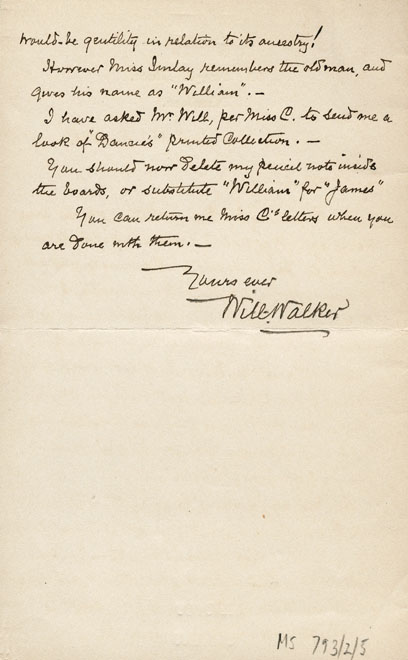 would-be gentility in relation to its ancestry!
However Miss Imlay remembers the old man, and
gives his name as "William". —
I have asked Mr Will, per Miss C. to send me a
look of "Dancie's" printed Collection. —
You should now delete my pencil note inside
the boards, or substitute "William" for "James"
You can return me Miss C's letters when you
are done with them. —
Yours ever
Will. Walker
MS 793/2/5